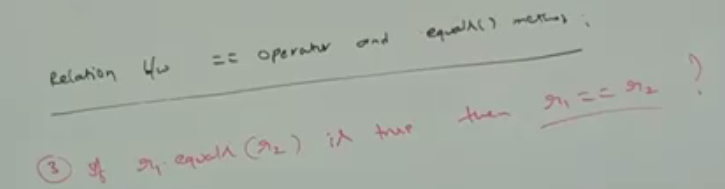 Relation b/w == operator and equals() method:
③ If r1.equals(r2) is true then r1 == r2 ?